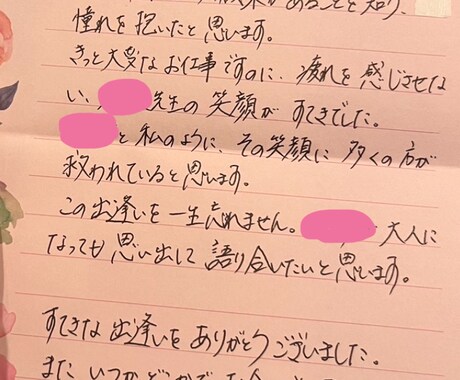 があることを知り、
憧れを抱いたと思います。
きっと大変なお仕事ですのに、疲れを感じさせな
い、先生の笑顔がすてきでした。
と私のように、その笑顔に多くの方が
救われていると思います。
この出逢いを一生忘れません。大人に
なっても思い出して語り合いたいと思います。
すてきな出逢いをありがとうございました。
また いつか どこかで